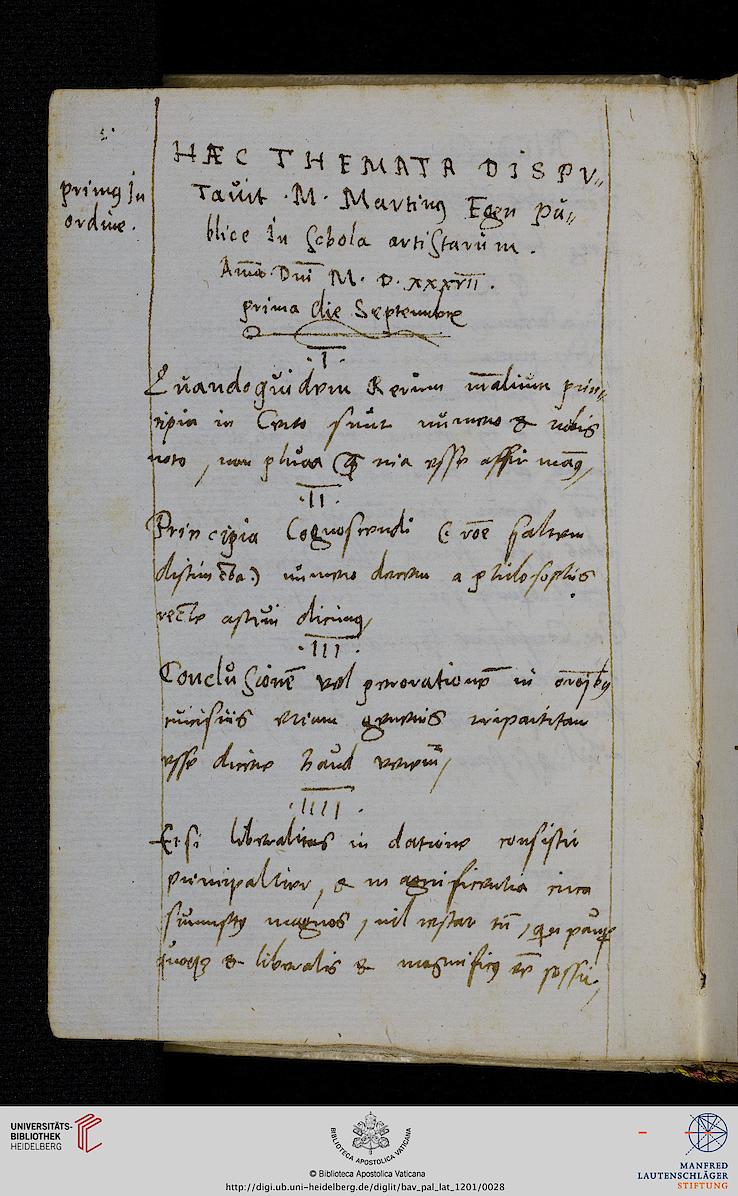 HÆC THEMATA DISPV„
tavit .M. Martinꝰ Egen pu„
blice in Schola artistarum.
Anno Dnī M. D. xxxvii.
prima die Septembre
primꝰ in
ordine.
.I.
Quandoquidem Rerum nāalium prin„
cipia in Certo sunt numero & nobis
noto, non plura esse
.II.
Principia Cognoscendi (rōe saltem
distincta) numero decem a philosophis
recte astrui
.III.
Conclusionē vel perorationē in
cuiusuis eciam generis tripartitam
esse dicere haud
.IIII.
Etsi liberalitas in datione consistit
principaliter, & magnificentia circa
sumptꝰ magnos, nil restat tn̄,
quoqꝫ & liberalis & magnificꝰ
UNIVERSITÄTS-
BIBLIOTHEK
HEIDELBERG
BIBLIOTHECA APOSTOLICA VATICANA
© Biblioteca Apostolica Vaticana
http://digi.ub.uni-heidelberg.de/diglit/bav_pal_lat_1201/0028
MANFRED
LAUTENSCHLÄGER
STIFTUNG